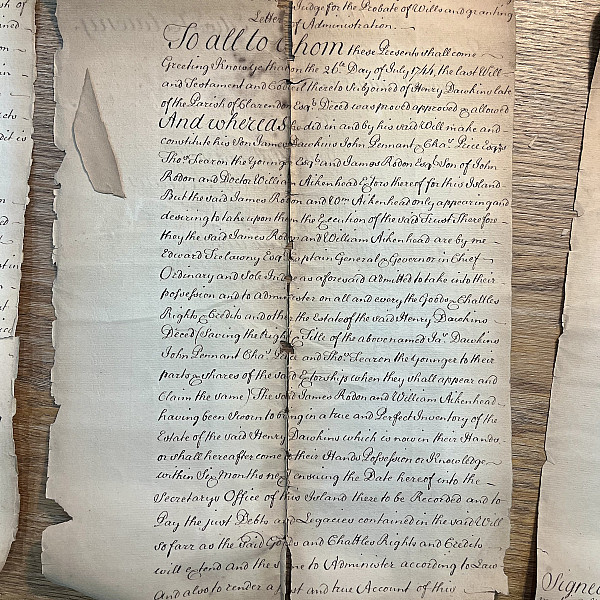 Judge for the Probate of Wills and granting
Letter of Administration
To all to whom these Presents shall come
Greeting Know ye that on the 26th Day of July 1744, the last Will
and Testament and Codicil thereto Subjoined of Henry Dawkins late
of the Parish of Clarendon Esqr. Deced was proved approved & allowed
And whereas he did in and by his said Will make and
constitute his Son James Dawkins John Pennant & Chas. Price Esqrs
Thos. Fearon the Younger Esqr. and James Rodon Esqr. Son of John
Rodon and Doctor William Aikenhead Extors thereof for this Island
But the said James Rodon and Wm. Aikenhead only appearing and
desiring to take upon them the Execution of the said Trust Therefore
they the said James Rodon and William Aikenhead are by me
Edward Trelawny Esqr. Captain General & Governor in Chief
Ordinary and Sole Judge as aforesaid admitted to take into their
possession and to Administer on all and every the Goods & Chattles
Rights & Credits and other the Estate of the said Henry Dawkins
Deced (Saving the Right & Title of the above named Jas. Dawkins
John Pennant Chas. Price and Thos. Fearon the Younger to their
parts & shares of the said Extorships when they shall appear and
Claim the same) The said James Rodon and William Aikenhead
having been Sworn to bring in a true and Perfect Inventory of the
Estate of the said Henry Dawkins which is now in their Hands
or shall hereafter come to their Hands Possession or Knowledge
within Six Months next ensuing the Date hereof into the
Secretarys Office of this Island there to be Recorded and to
Pay the just Debts and Legacies contained in the said Will
so farr as the said Goods and Chattles Rights and Credits
will extend and the same to Administer according to Law
And also to render a just and true Account of this
Signed